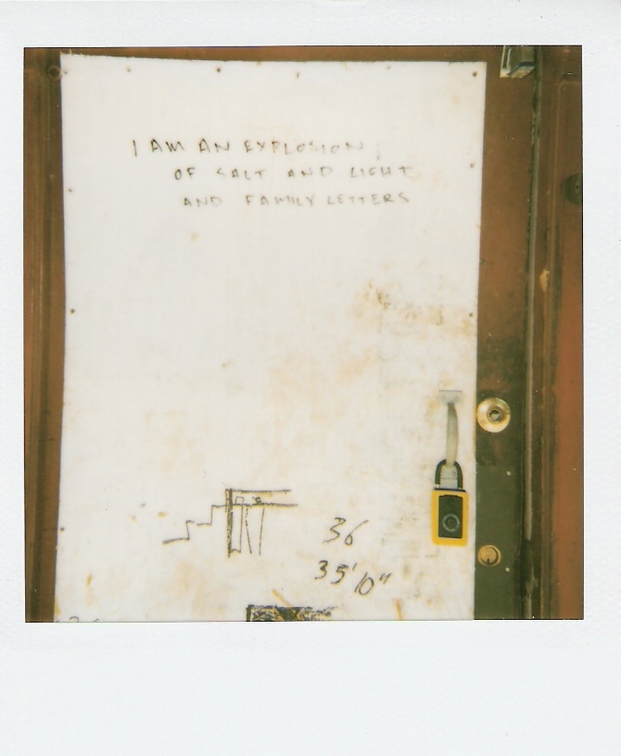 I AM AN EXPLOSION
OF SALT AND LIGHT
AND FAMILY LETTERS
36
35' 10"